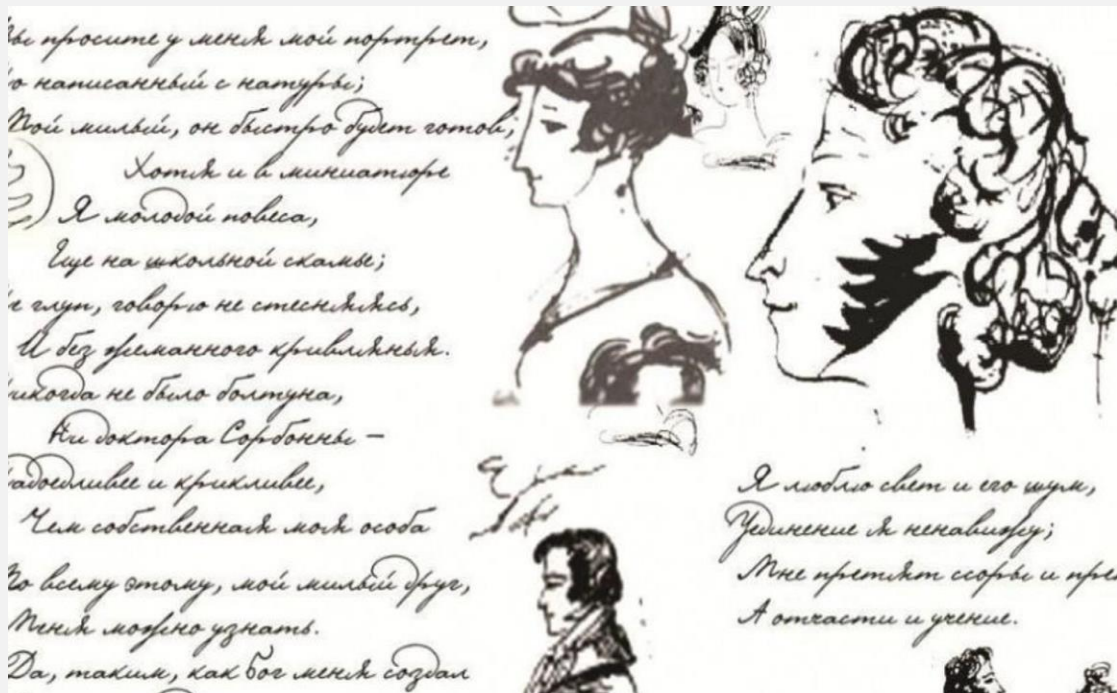 вы просите у меня мой портрет,
о написанный с натуры;
Мой милый, он быстро будет готов,
Хотя и в миниатюре
Я молодой повеса,
Еще на школьной скамье;
е глуп, говорю не стесняясь,
И без жеманного кривлянья.
икогда не было болтуна,
Ни доктора Сорбонны –
адоедливее и крикливее,
Чем собственная моя особа
По всему этому, мой милый друг,
Меня можно узнать.
Да, таким, как Бог меня создал
Я люблю свет и его шум,
Уединение я ненавижу;
Мне претят ссоры и пре
А отчасти и учение.